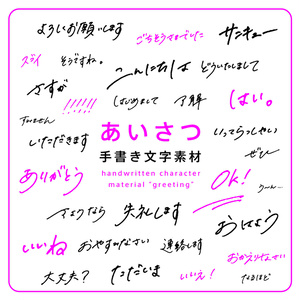 よろしくお願いします
ごちそうさまでした
サンキュー
ズゴイ
そうですね。
こんにちは
どういたしまして
さすが
!!!!!!
はじめまして
了解
はい。
すみません
いただきます
あいさつ
いってらっしゃい
手書き文字素材
ぜひ
handwritten character
material "greeting"
ありがとう
OK!
さようなら
失礼します
おはよう
いいね
おやすみなさい
連絡します
おかえりなさい
大丈夫?
ただいま
いいえ!
なるほど